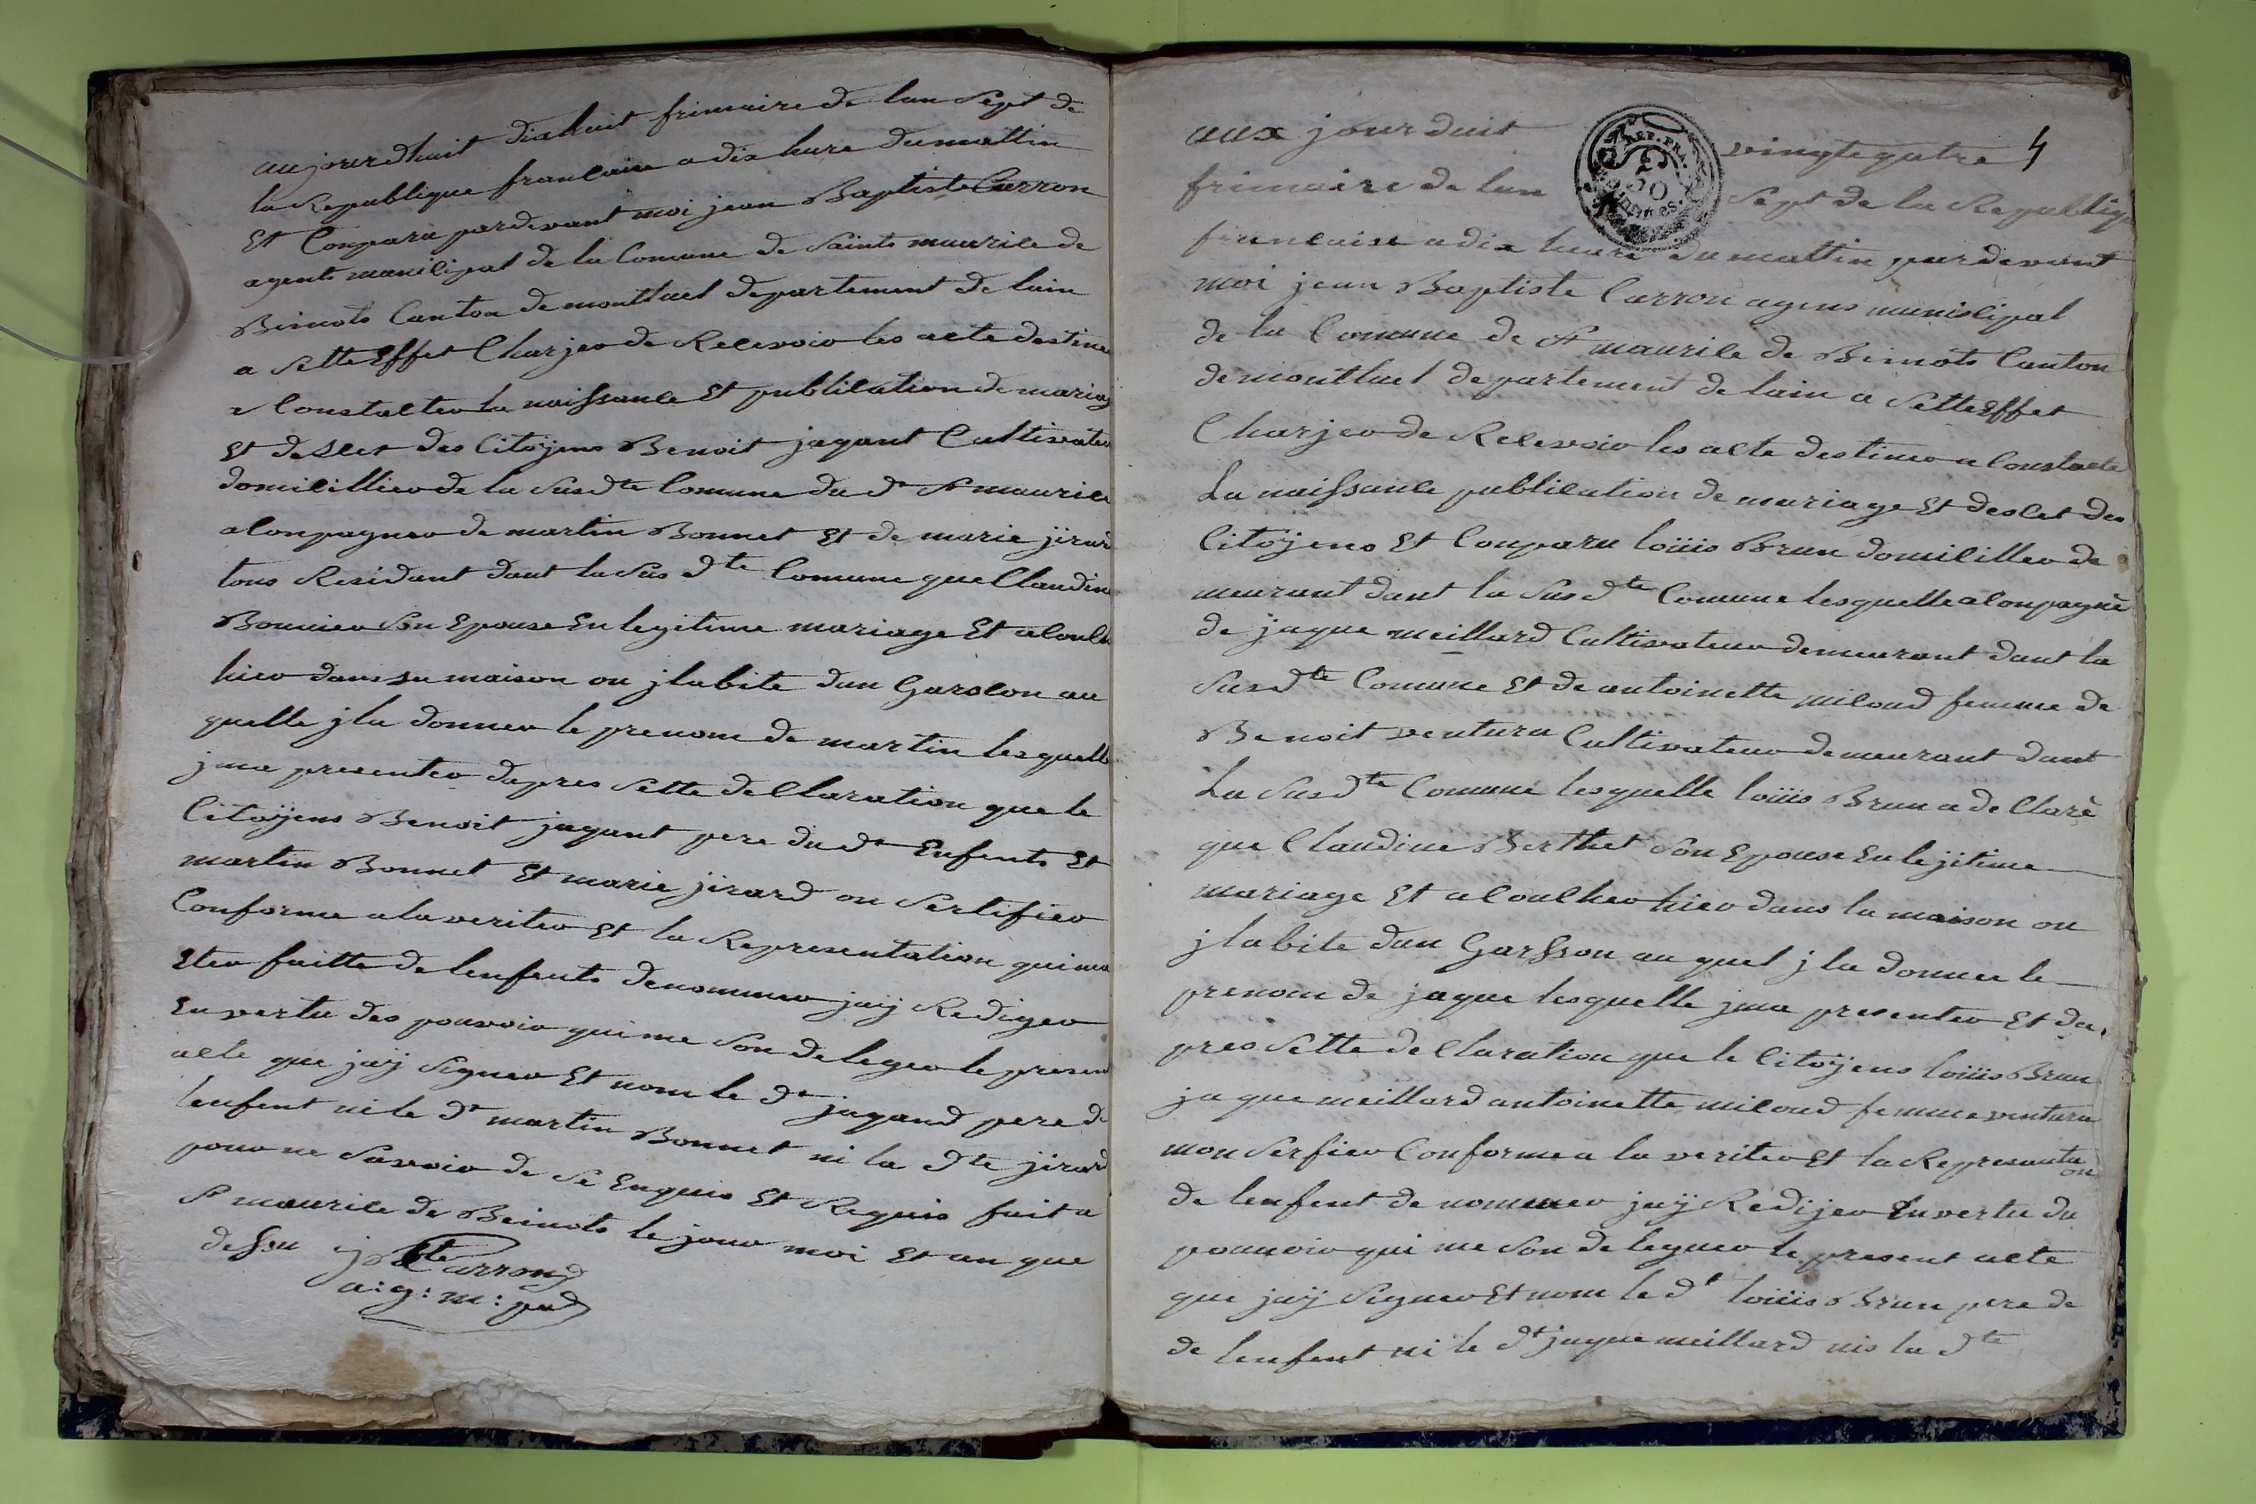 aujourdhuit dixhuit frimaire de lan Sept de
la Republique francaise a dix hure du mattin
Et Conparu pardevant moi jean Baptiste Carron
agents municipal de la Comune de Saints maurice de
Beinots Canton de montluel departement de lain
a sette Effet Charjer de Recevoir les acte destine
a Constacter la naissance Et publication de mariag
Et desces des Citoÿens Benoit jagant Cultivateu
domicillier de la Susdte Comune du dt St maurice
aConpagner de martin Bonnet Et de marie jirard
tous Residant dant la Sus dte Comune que Claudine
Son Epouse En legitime mariage Et acouch
hier dans sa maison ou jlabite dun Garscon au
quelle jla donner le prenom de martin lesquelle
jma presenter dapres sette declaration que le
Citoÿens Benoit jagant pere du dt Enfents Et
martin Bonnet Et marie jirard on Sertifier
Conforme a la veriter Et la Representation qui ma
Eter faitte de lenfents denommer jaÿ Rediger
En vertu des pouvoir qui me Son deleger le presen
acte que jaÿ Signer Et nom le dt jagand pere de
lenfent ni le dt martin Bonnet ni la dte jirard
pour ne Savoir de Se Enquis Et Requis fait a
St maurice de Beinots le jour moi Et an que
dessu jbte Carrond
a: g: m: pad
aux jourduit vingtequtre 4
frimaire de lan Sept de la Republiqu
francaise a dix heure du mattin pardevant
moi jean Baptiste Carron agens municipal
de la Comune de St maurice de Beinots Canton
de montluel departement de lain a Sette Effet
Charjer de Recevoir les acte destiner a Constacte
La naissance publication de mariage Et desces des
Citoÿens Et Conparu loüis Brun domicillier de
meurant dant la Susdte Comune lesquelle aConpagnè
de jaque meillard Cultivateur demeurant dant la
Susdte Comune Et de antoinette miloud femme de
Benoit ventura Cultivateur demeurant dant
La Susdte Comune lesquelle loüis Brun a de Clarè
que Claudine Berthet Son Epouse En lejitime
mariage Et acoulher hier dans la maison ou
jlabite dun Garsson au quel jla donner le
prenom de jaque lesquelle jma presenter Et da
pres Sette declaration que le Citoÿens loüis Brun
jaque meillard antoinette miloud femme ventura
mon Serfier Conforme a la veriter Et la Represantati
on
de lenfent de nommer jaÿ Redijer En vertu du
pouvoir qui me Son deleguer le present acte
que jaÿ Signer Et nom le dt loüis Brun pere de
de lenfent ni le dt jaque meillard nis la dte